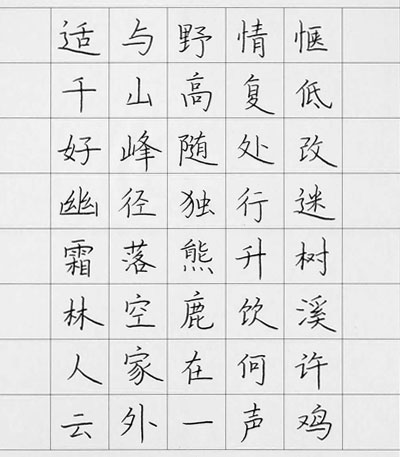 适与野情惬
千山高复低
好峰随处改
幽径独行迷
霜落熊升树
林空鹿饮溪
人家在何许
云外一声鸡